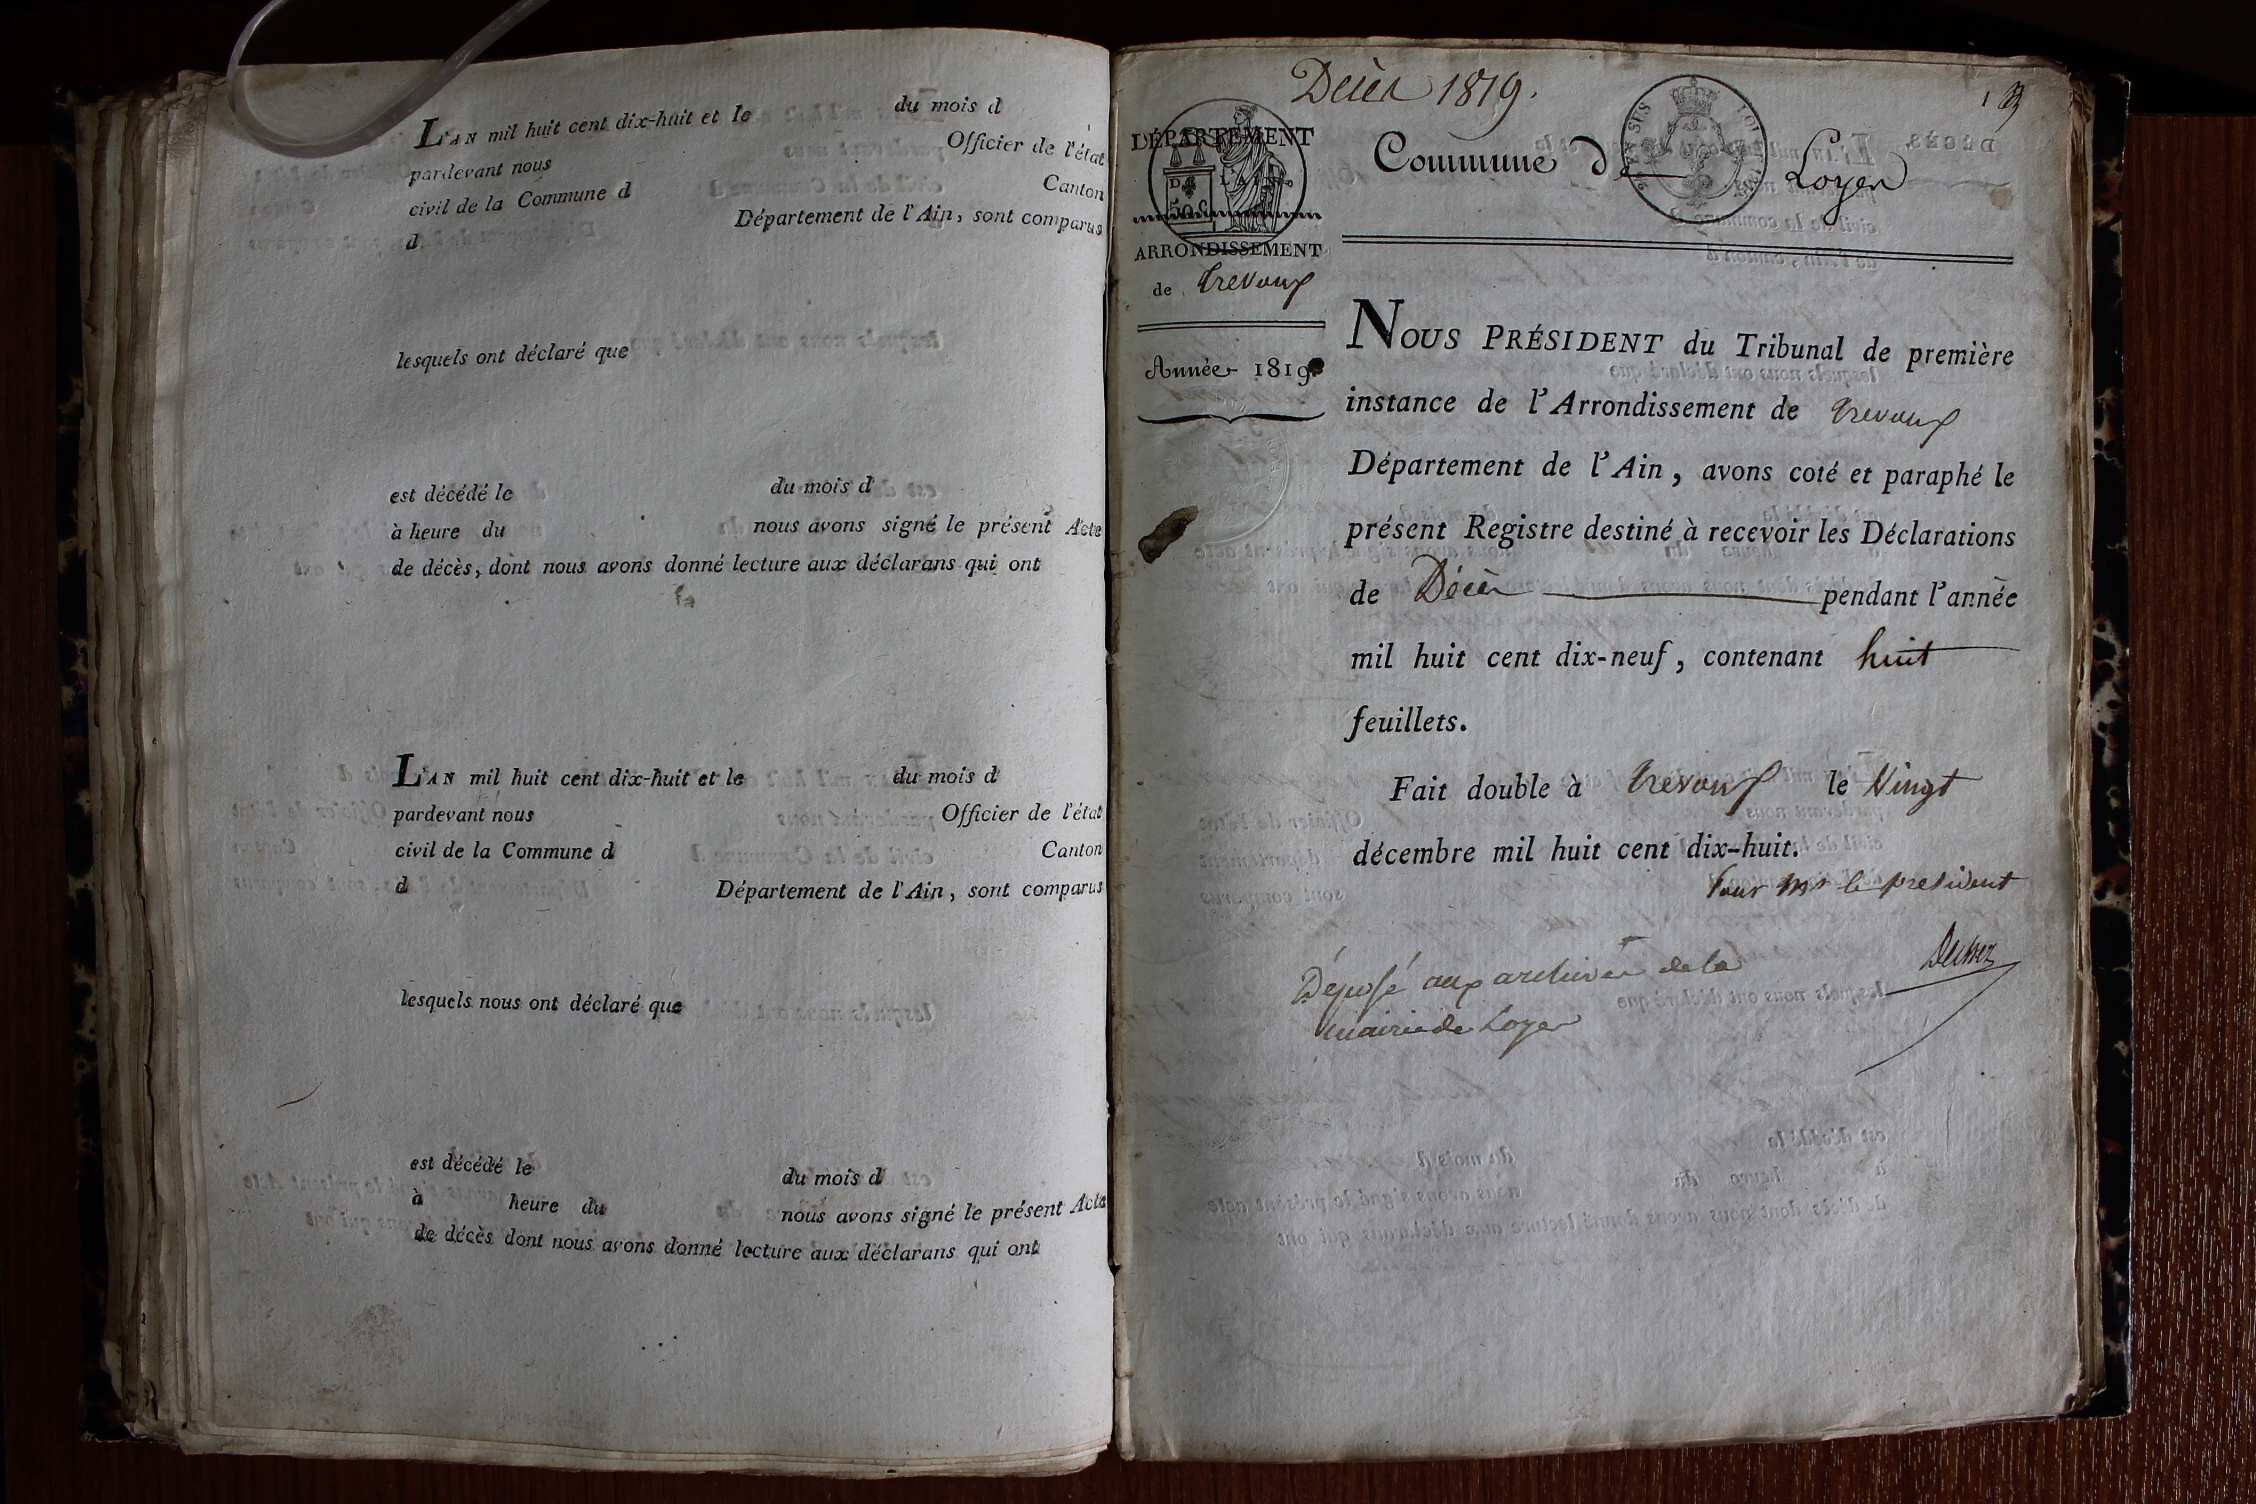 L'AN mil huit cent dix-huit et le du mois d
pardevant nous Officier de l'état
civil de la Commune d Canton
d Département de l'Ain, sont comparus
lesquels ont déclaré que
est décédé le du mois d
à heure du nous avons signé le présent Acte
de décès, dont nous avons donné lecture aux déclarans qui ont
L'AN mil huit cent dix-huit et le du mois d
pardevant nous Officier de l'état
civil de la Commune d Canton
d Département de l'Ain, sont comparus
lesquels nous ont déclaré que
est décédé le du mois d
à heure du nous avons signé le présent Acte
de décès dont nous avons donné lecture aux déclarans qui ont
Décès 1819.
DÉPARTEMENT
DE L'AIN
ARRONDISSEMENT
de Trevoux
Année 1819
Commune d Loyes
NOUS PRÉSIDENT du Tribunal de première
instance de l'Arrondissement de Trevoux
Département de l'Ain, avons coté et paraphé le
présent Registre destiné à recevoir les Déclarations
de Décès pendant l'année
mil huit cent dix-neuf, contenant huit
feuillets.
Fait double à Trevoux le Vingt
décembre mil huit cent dix-huit.
Pour Mr le president
Déposé aux archives de la
mairie de Loyes